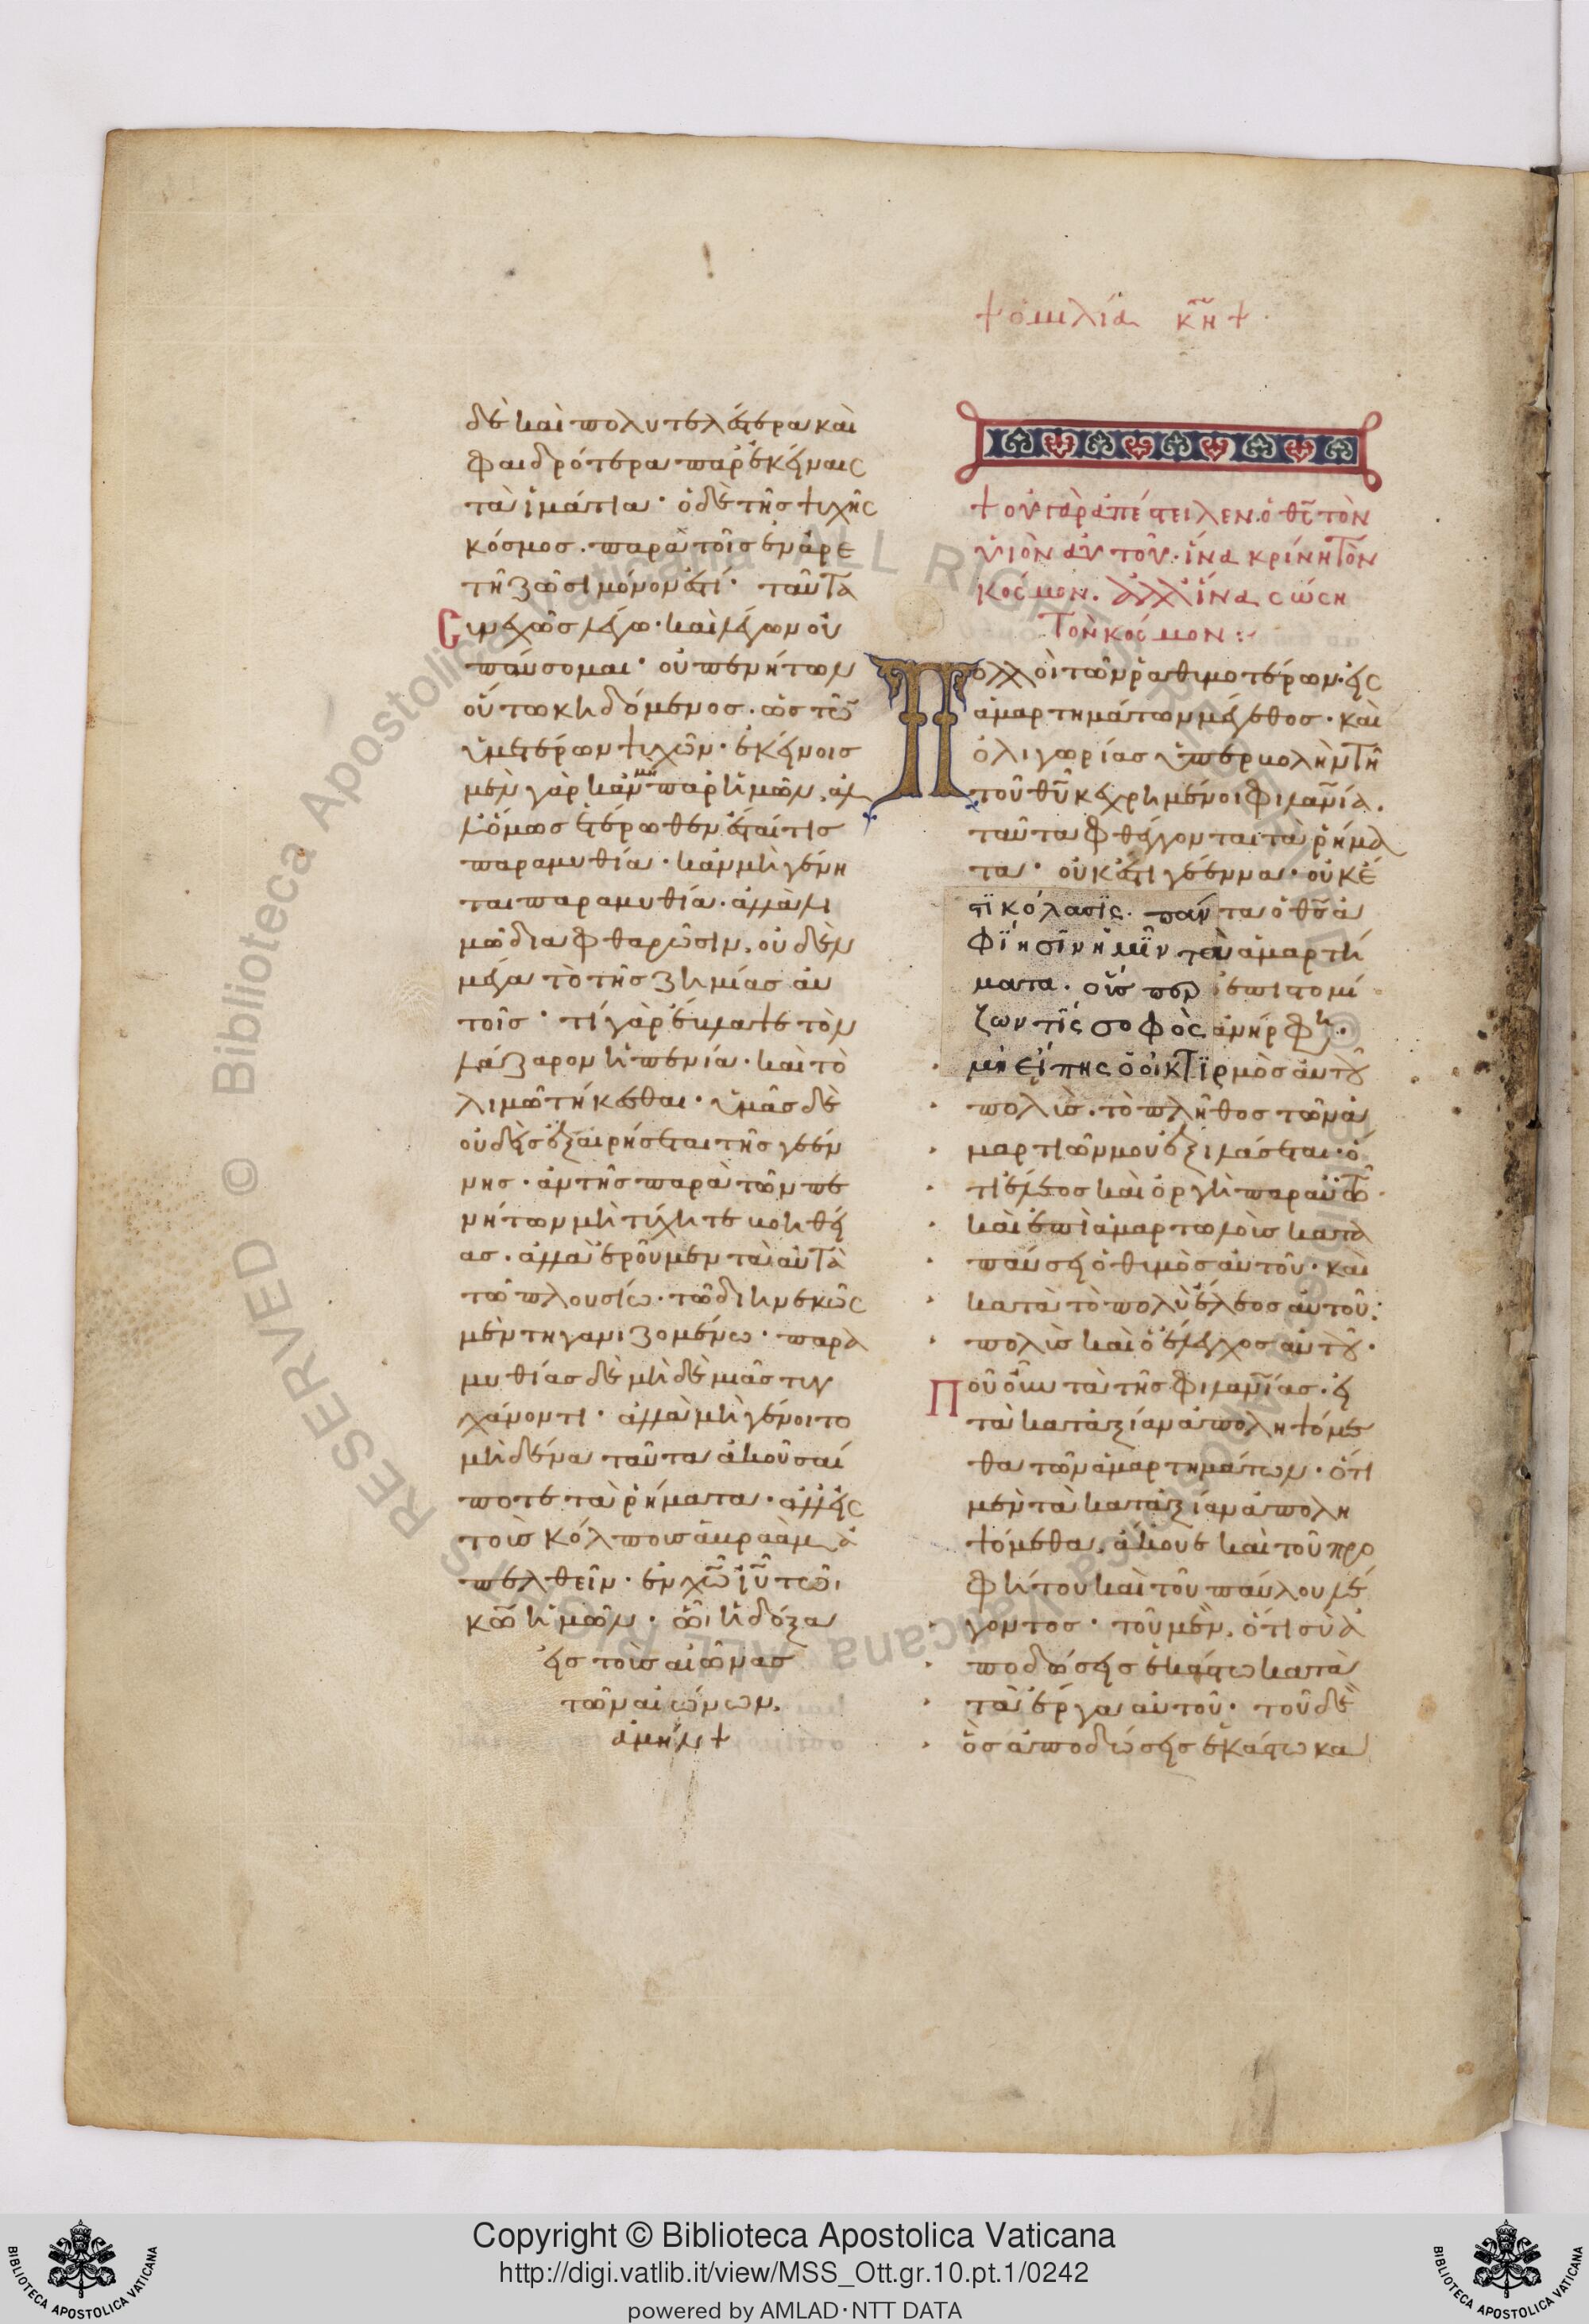 †ὁμιλία κη†
δὲ καὶ πολυτελέστερα καὶ
φαιδρότερα παρ' ἐκείναις
τὰ ἱμάτια· ὁ δὲ τῆς ψυχῆς
κόσμος. παρὰ τοῖς ἐν ἀρε
τῆ ζῶσι μόνον ἐστί· ταῦτα
Συνεχῶς λέγω· καὶ λέγων οὐ
παύσομαι· οὐ πενήτων
οὕτω κηδόμενος. ὡς τῶν
ὑμετέρων ψυχῶν· ἐκείνοις
μὲν γὰρ κἂν μὴ παρ' ἡμῶν, ἀλ
λ' ὅμως ἑτέρωθεν ἔσται τις
παραμυθία· κἂν μὴ γένη
ται παραμυθία. ἀλλὰ λι
μῶ διαφθαρῶσιν, οὐδὲν
μέγα τὸ τῆς ζημίας αυ
τοῖς· τί γὰρ ἔβλαψε τὸν
λάζαρον ἡ πενία· καὶ τὸ
λιμῶ τήκεσθαι· ὑμᾶς δὲ
οὐδεὶς ἐξαιρήσεται τῆς γεέν
νης. ἂν τῆς παρὰ τῶν πε
νήτων μὴ τύχητε βοηθεί
ας. ἀλλὰ ἐροῦμεν τὰ αὐτὰ
τῶ πλουσίω. τῶ διηνεκῶς
μὲν τηγανιζομένω· παρα
μυθίας δὲ μηδεμιᾶς τυγ
χάνοντι· ἀλλὰ μὴ γένοιτο
μηδένα ταῦτα ἀκοῦσαί
ποτε τὰ ῥήματα· ἀλλ' εἰς
τοὺς κόλπους ἀβραὰμ ἀ
πελθεῖν· ἐν χῶ ἰῦ τῶ
κῶ ἡμῶν· ὧ ἡ δόξα
εἰς τοὺς αἰῶνας
τῶν αἰώνων.
ἀμήν†
†οὐ γὰρ ἀπέστειλεν ὁ θς τὸν
υἱὸν αὐτοῦ. ἵνα κρίνη τὸν
κόσμον. ἀλλ' ἵνα σώση
τὸν κόσμον:
Πολλοὶ τῶν ῥαθυμοτέρων· εἰς
ἁμαρτημάτων μέγεθος· καὶ
ὀλιγωρίας ὑπερβολὴν τῆ
τοῦ θυ κεχρημένοι φιλανία.
ταῦτα φθέγγονται τὰ ῥήμα
τα· οὐκ ἔστι γέεννα· οὐκ ἔ
στι κόλασις. πάντα ὁ θς ἀ
φίησιν ἡμῖν τὰ ἁμαρτή
ματα. οὓς περ ἐπιστομί
ζων τίς σοφὸς ἀνήρ φη·
μὴ εἴπης ὁ οἰκτιρμὸς αὐτοῦ
πολὺς. τὸ πλῆθος τῶν ἁ
μαρτιῶν μου ἐξιλάσεται· ὅ
τι ἔλεος καὶ ὀργὴ παρ' αὐτῶ·
καὶ ἐπὶ ἁμαρτωλοὺς κατα
παύσει ὁ θυμὸς αὐτοῦ· καὶ
κατὰ τὸ πολὺ ἔλεος αὐτοῦ·
πολὺς καὶ ὁ ἔλεγχος αὐτοῦ·
Ποῦ οὖν τὰ τῆς φιλανίας. εἰ
τὰ κατ' ἀξίαν ἀποληψόμε
θα τῶν ἁμαρτημάτων. ὅτι
μὲν τὰ κατ' ἀξίαν ἀπολη
ψόμεθα, ἄκουε καὶ τοῦ προ
φήτου καὶ τοῦ παύλου λέ
γοντος· τοῦ μὲν, ὅτι σὺ ἀ
ποδώσεις ἑκάστω κατὰ
τὰ ἔργα αὐτοῦ· τοῦ δὲ
ὃς ἀποδώσει ἑκάστω κα
Copyright © Biblioteca Apostolica Vaticana
http://digi.vatlib.it/view/MSS_Ott.gr.10.pt.1/0242
powered by AMLAD·NTT DATA
BIBLIOTECA APOSTOLICA VATICANA
BIBLIOTECA APOSTOLICA VATICANA